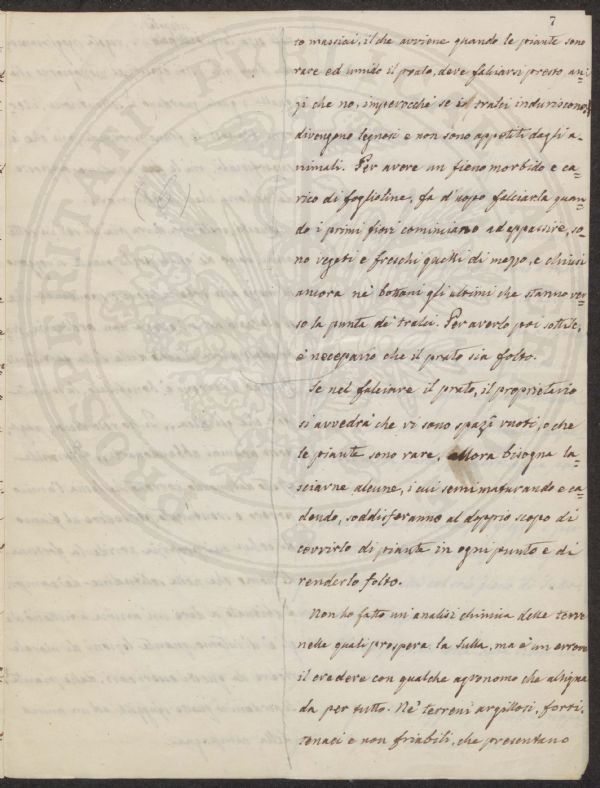 7
to massiai, il che avviene quando le piante sono
rare ed umido il prato, deve falciarsi presto an=
zi che no, imperocchè se i tralci induriscono,
divengono legnosi e non sono appetiti dagli a=
nimali. Per avere un fieno morbido e ca=
rico di foglioline, fa d'uopo falciarla quan=
do i primi fiori cominciano ad appassire, so=
no vegeti e freschi quelli di mezzo, e chiusi
ancora ne' bottoni gli ultimi che stanno ver=
so la punta de' tralci. Per averlo poi sottile,
è necessario che il prato sia folto.
Se nel falciare il prato, il proprietario
si avvedrà che vi sono spazî vuoti, o che
le piante sono rare, allora bisogna la=
sciarne alcune, i cui semi maturando e ca=
dendo, soddisferanno al doppio scopo di
covrirlo di piante in ogni punto e di
renderlo folto.
Non ho fatto un'analisi chimica delle terre
nelle quali prospera la Sulla, ma è un errore
il credere con qualche agronomo che alligna
da per tutto. Ne' terreni argillosi, forti,
tenaci e non friabili, che presentano
PROSPERITATI